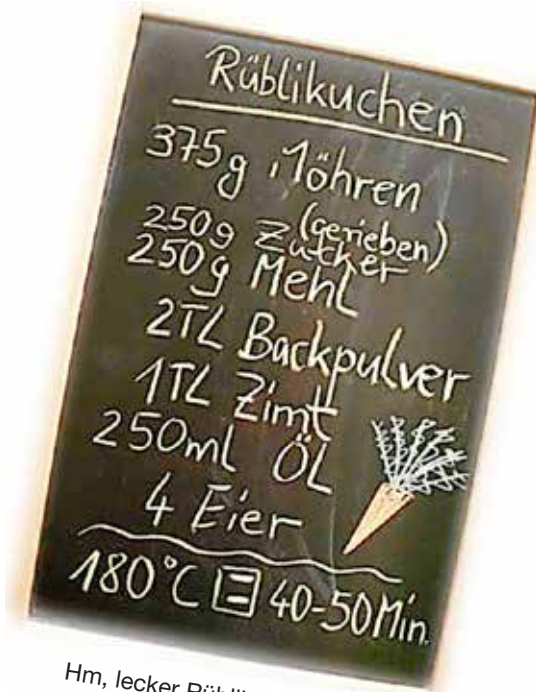 Rüblikuchen
375g Möhren
(gerieben)
250g Zucker
250g Mehl
2TL Backpulver
1TL Zimt
250ml Öl
4 Eier
180°C 40-50Min.
Hm, lecker